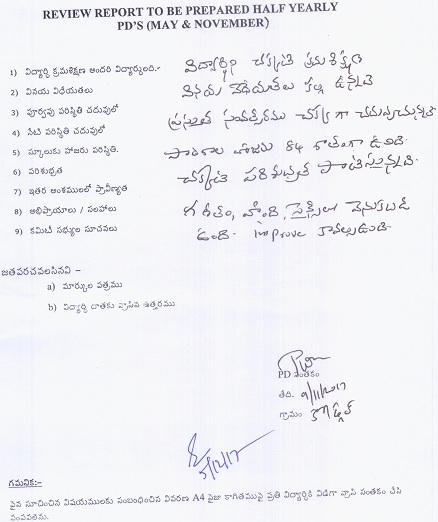 REVIEW REPORT TO BE PREPARED HALF YEARLY
PD'S (MAY & NOVEMBER)
1) విద్యార్థి క్రమశిక్షణ అందరి విద్యార్థులది.- విద్యార్థిని చక్కటి క్రమశిక్షణ
2) వినయ విధేయతలు వినయ విధేయతలు కల్గి ఉన్నది
3) పూర్వపు పరిస్థితి చదువులో ప్రస్తుత సంవత్సరము చక్కగా చదువుచున్నది
4) నేటి పరిస్థితి చదువులో
5) స్కూలుకు హాజరు పరిస్థితి. పాఠశాల హాజరు 84 శాతంగా ఉంది.
6) పరిశుభ్రత చక్కటి పరిశుభ్రత పాటిస్తున్నది.
7) ఇతర అంశములలో ప్రావీణ్యత
8) అభిప్రాయాలు / సలహాలు గణితం, హిందీ, సైన్స్‌లో వెనుకబడి
9) కమిటి సభ్యుల సూచనలు ఉంది. improve కావల్సుఉంది.
జతపరచవలసినవి :-
a) మార్కుల పత్రము
b) విద్యార్థి దాతకు వ్రాసిన ఉత్తరము
PD సంతకం
తేది. 9/11/2017
గ్రామం
5/12/17
గమనిక:-
పైన సూచించిన విషయములకు సంబంధించిన వివరణ A4 సైజు కాగితముపై ప్రతి విద్యార్థికి విడిగా వ్రాసి సంతకం చేసి
పంపవలెను.